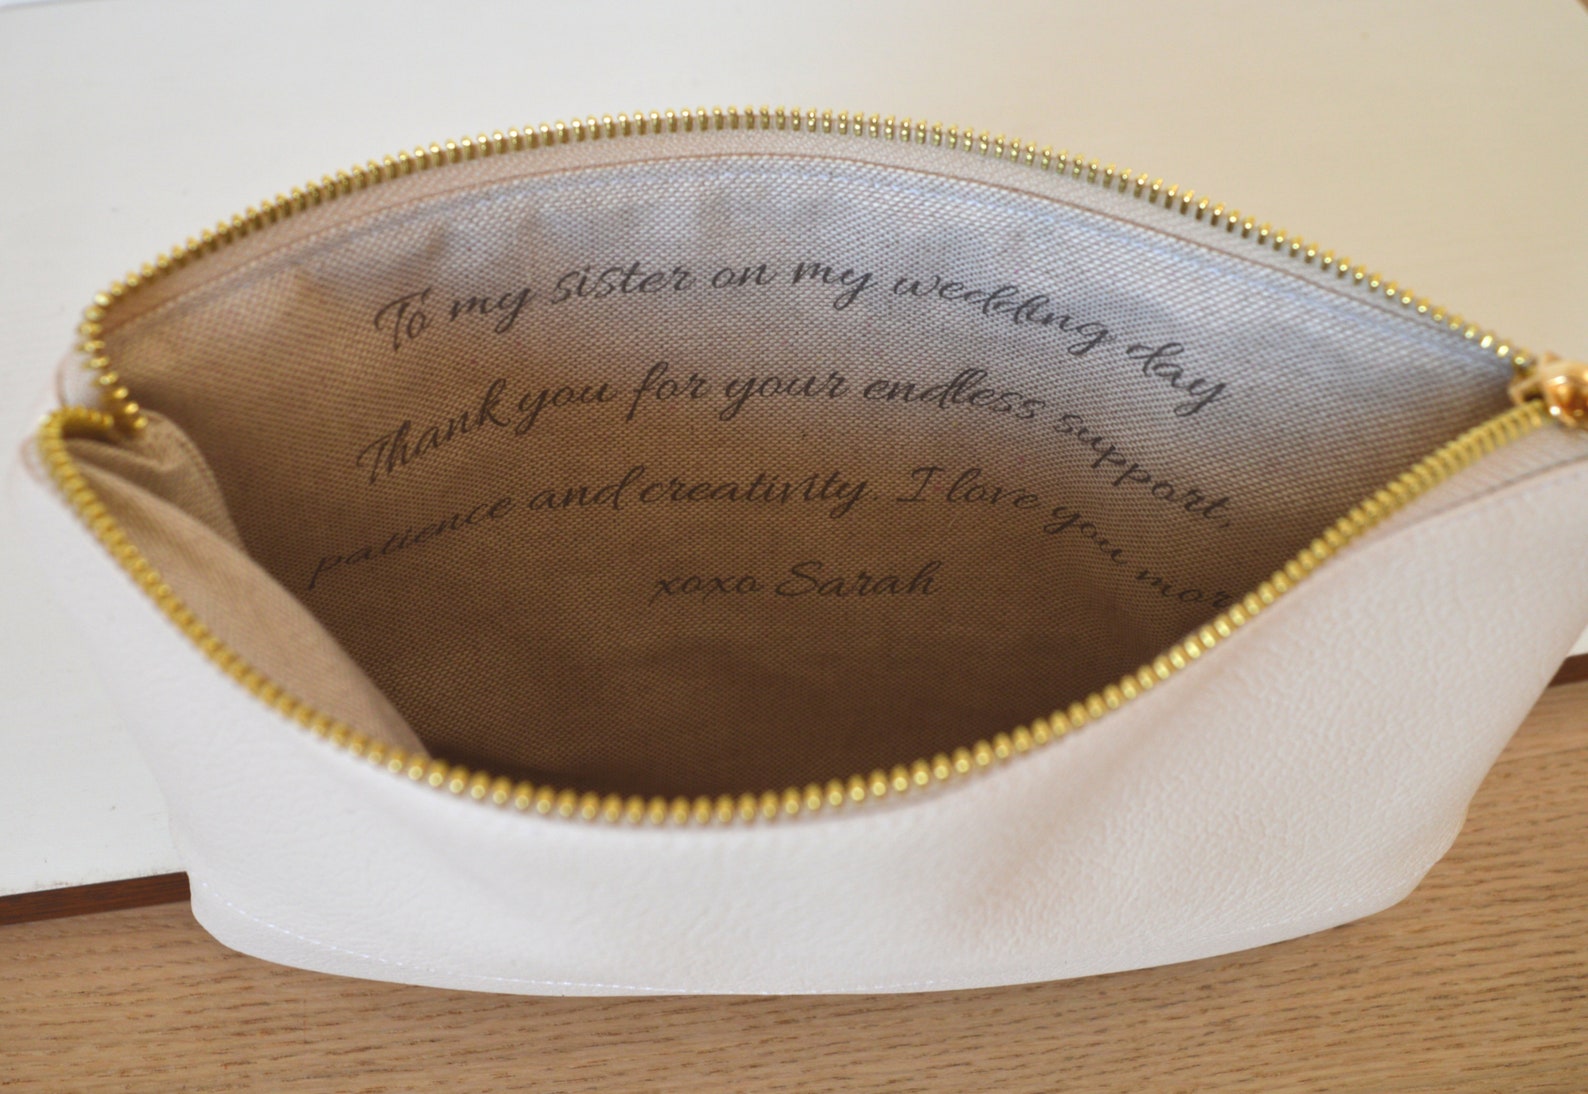 To my sister on my wedding day
Thank you for your endless support,
patience and creativity. I love you mor
xoxo Sarah